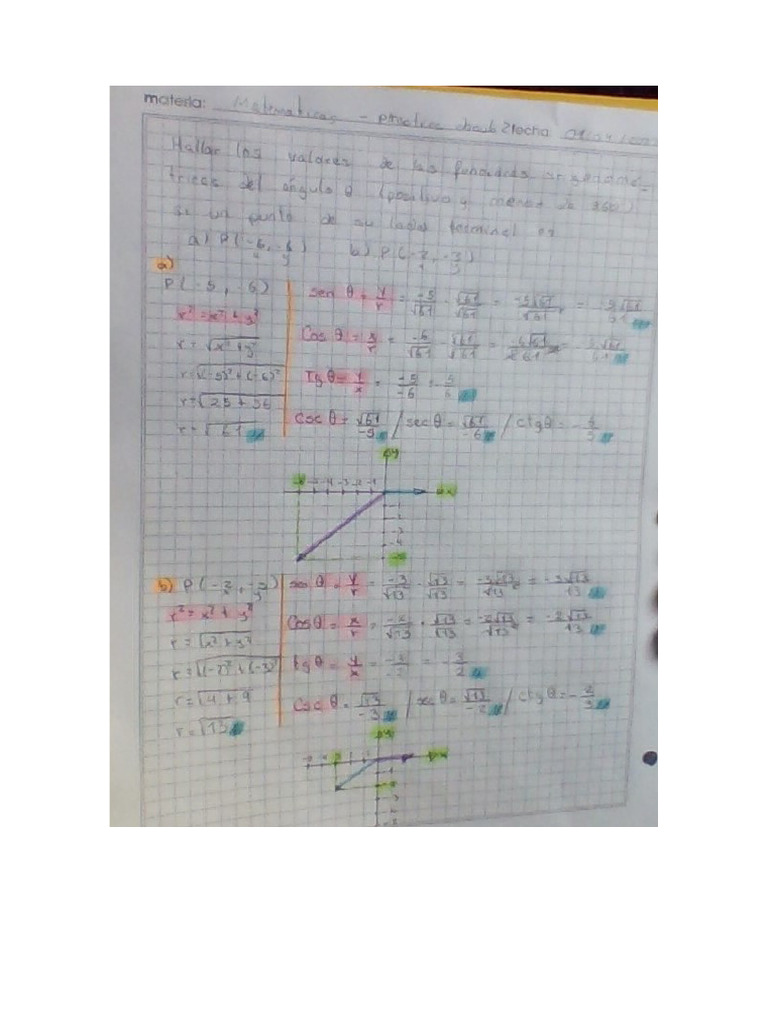 materia: Matematicas - practica fecha
Hallar los valores de las funciones trigonomé-
tricas del ángulo θ (positivo y menor de 360°)
si un punto de su lado terminal es
a) P(-6, -6) b) P(-2, -3)
x y x y
a)
P(-5, -6)
r² = x² + y²
r = √x² + y²
r = √(-5)² + (-6)²
r = √25 + 36
r = √61
sen θ = y/r = -5/√61 · √61/√61 = -5√61/√61² = -5√61/61
Cos θ = x/r = -6/√61 · √61/√61 = -6√61/√61² = -6√61/61
Tg θ = y/x = -5/-6 = 5/6
Csc θ = √61/-5 / sec θ = √61/-6 / ctg θ = - 6/5
-4 -3 -2 -1
-1
-2
-3
-4
b) P(-2, -3)
x y
r² = x² + y²
r = √x² + y²
r = √(-2)² + (-3)²
r = √4 + 9
r = √13
sen θ = y/r = -3/√13 · √13/√13 = -3√13/√13² = -3√13/13
Cos θ = x/r = -2/√13 · √13/√13 = -2√13/√13² = -2√13/13
tg θ = y/x = -3/-2 = - 3/2
Csc θ = √13/-3 / sec θ = √13/-2 / ctg θ = - 2/3